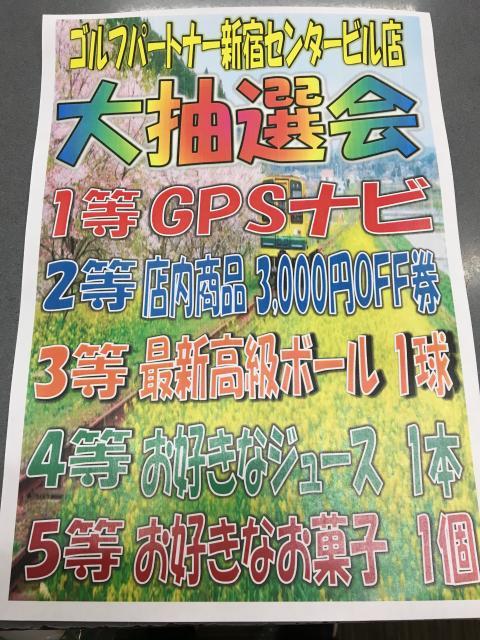 ゴルフパートナー新宿センタービル店
大抽選会
1等 GPSナビ
2等 店内商品 3,000円OFF券
3等 最新高級ボール 1球
4等 お好きなジュース 1本
5等 お好きなお菓子 1個